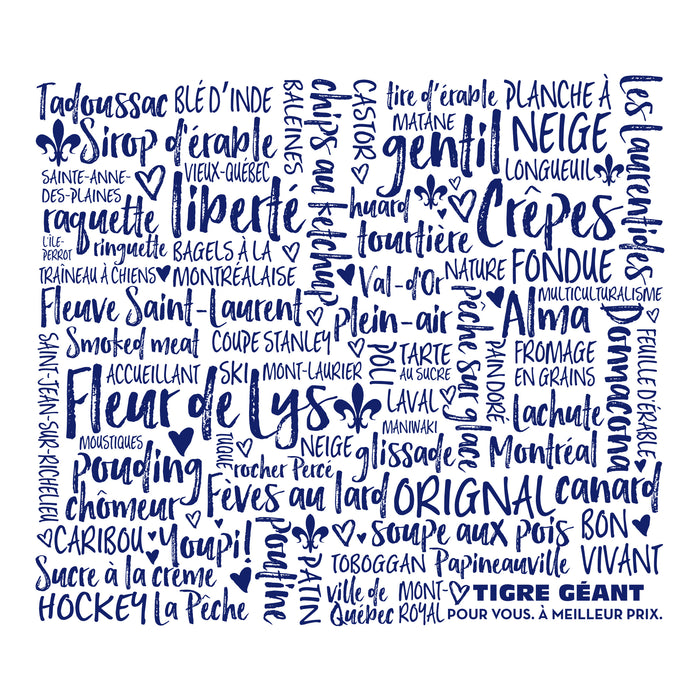 Tadoussac
BLÉ D'INDE
BALEINES
chips au ketchup
CASTOR
tire d'érable
PLANCHE À NEIGE
Les Laurentides
Sirop d'érable
MATANE
gentil
LONGUEUIL
SAINTE-ANNE-
DES-PLAINES
VIEUX-QUÉBEC
liberté
huard
Crêpes
raquette
tourtière
L'ÎLE-
PERROT
ringuette
BAGELS À LA
MONTRÉALAISE
TRAÎNEAU À CHIENS
Val-d'Or
NATURE
FONDUE
MULTICULTURALISME
Fleuve Saint-Laurent
plein-air
pêche sur glace
Alma
Donnacona
FEUILLE D'ÉRABLE
SAINT-JEAN-SUR-RICHELIEU
Smoked meat
COUPE STANLEY
POLI
TARTE
AU SUCRE
PAIN DORÉ
FROMAGE
EN GRAINS
ACCUEILLANT
SKI
MONT-LAURIER
Fleur de Lys
LAVAL
MANIWAKI
Lachute
MOUSTIQUES
TUQUE
NEIGE
rocher Percé
glissade
Montréal
pouding
chômeur
Fèves au lard
ORIGNAL
canard
CARIBOU
Youpi!
poutine
PATIN
soupe aux pois
BON
VIVANT
Sucre à la crème
TOBOGGAN
Papineauville
HOCKEY
La Pêche
ville de
Québec
MONT-
ROYAL
TIGRE GÉANT
POUR VOUS. À MEILLEUR PRIX.